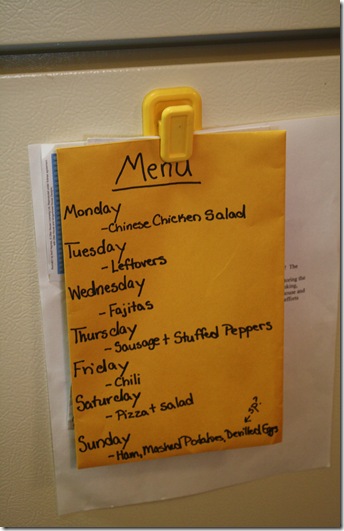 Menu
Monday
- Chinese Chicken Salad
Tuesday
- Leftovers
Wednesday
- Fajitas
Thursday
- Sausage + Stuffed Peppers
Friday
- Chili
Saturday
- Pizza + salad
Sunday
- Ham, Mashed Potatoes, Deviled Eggs
The